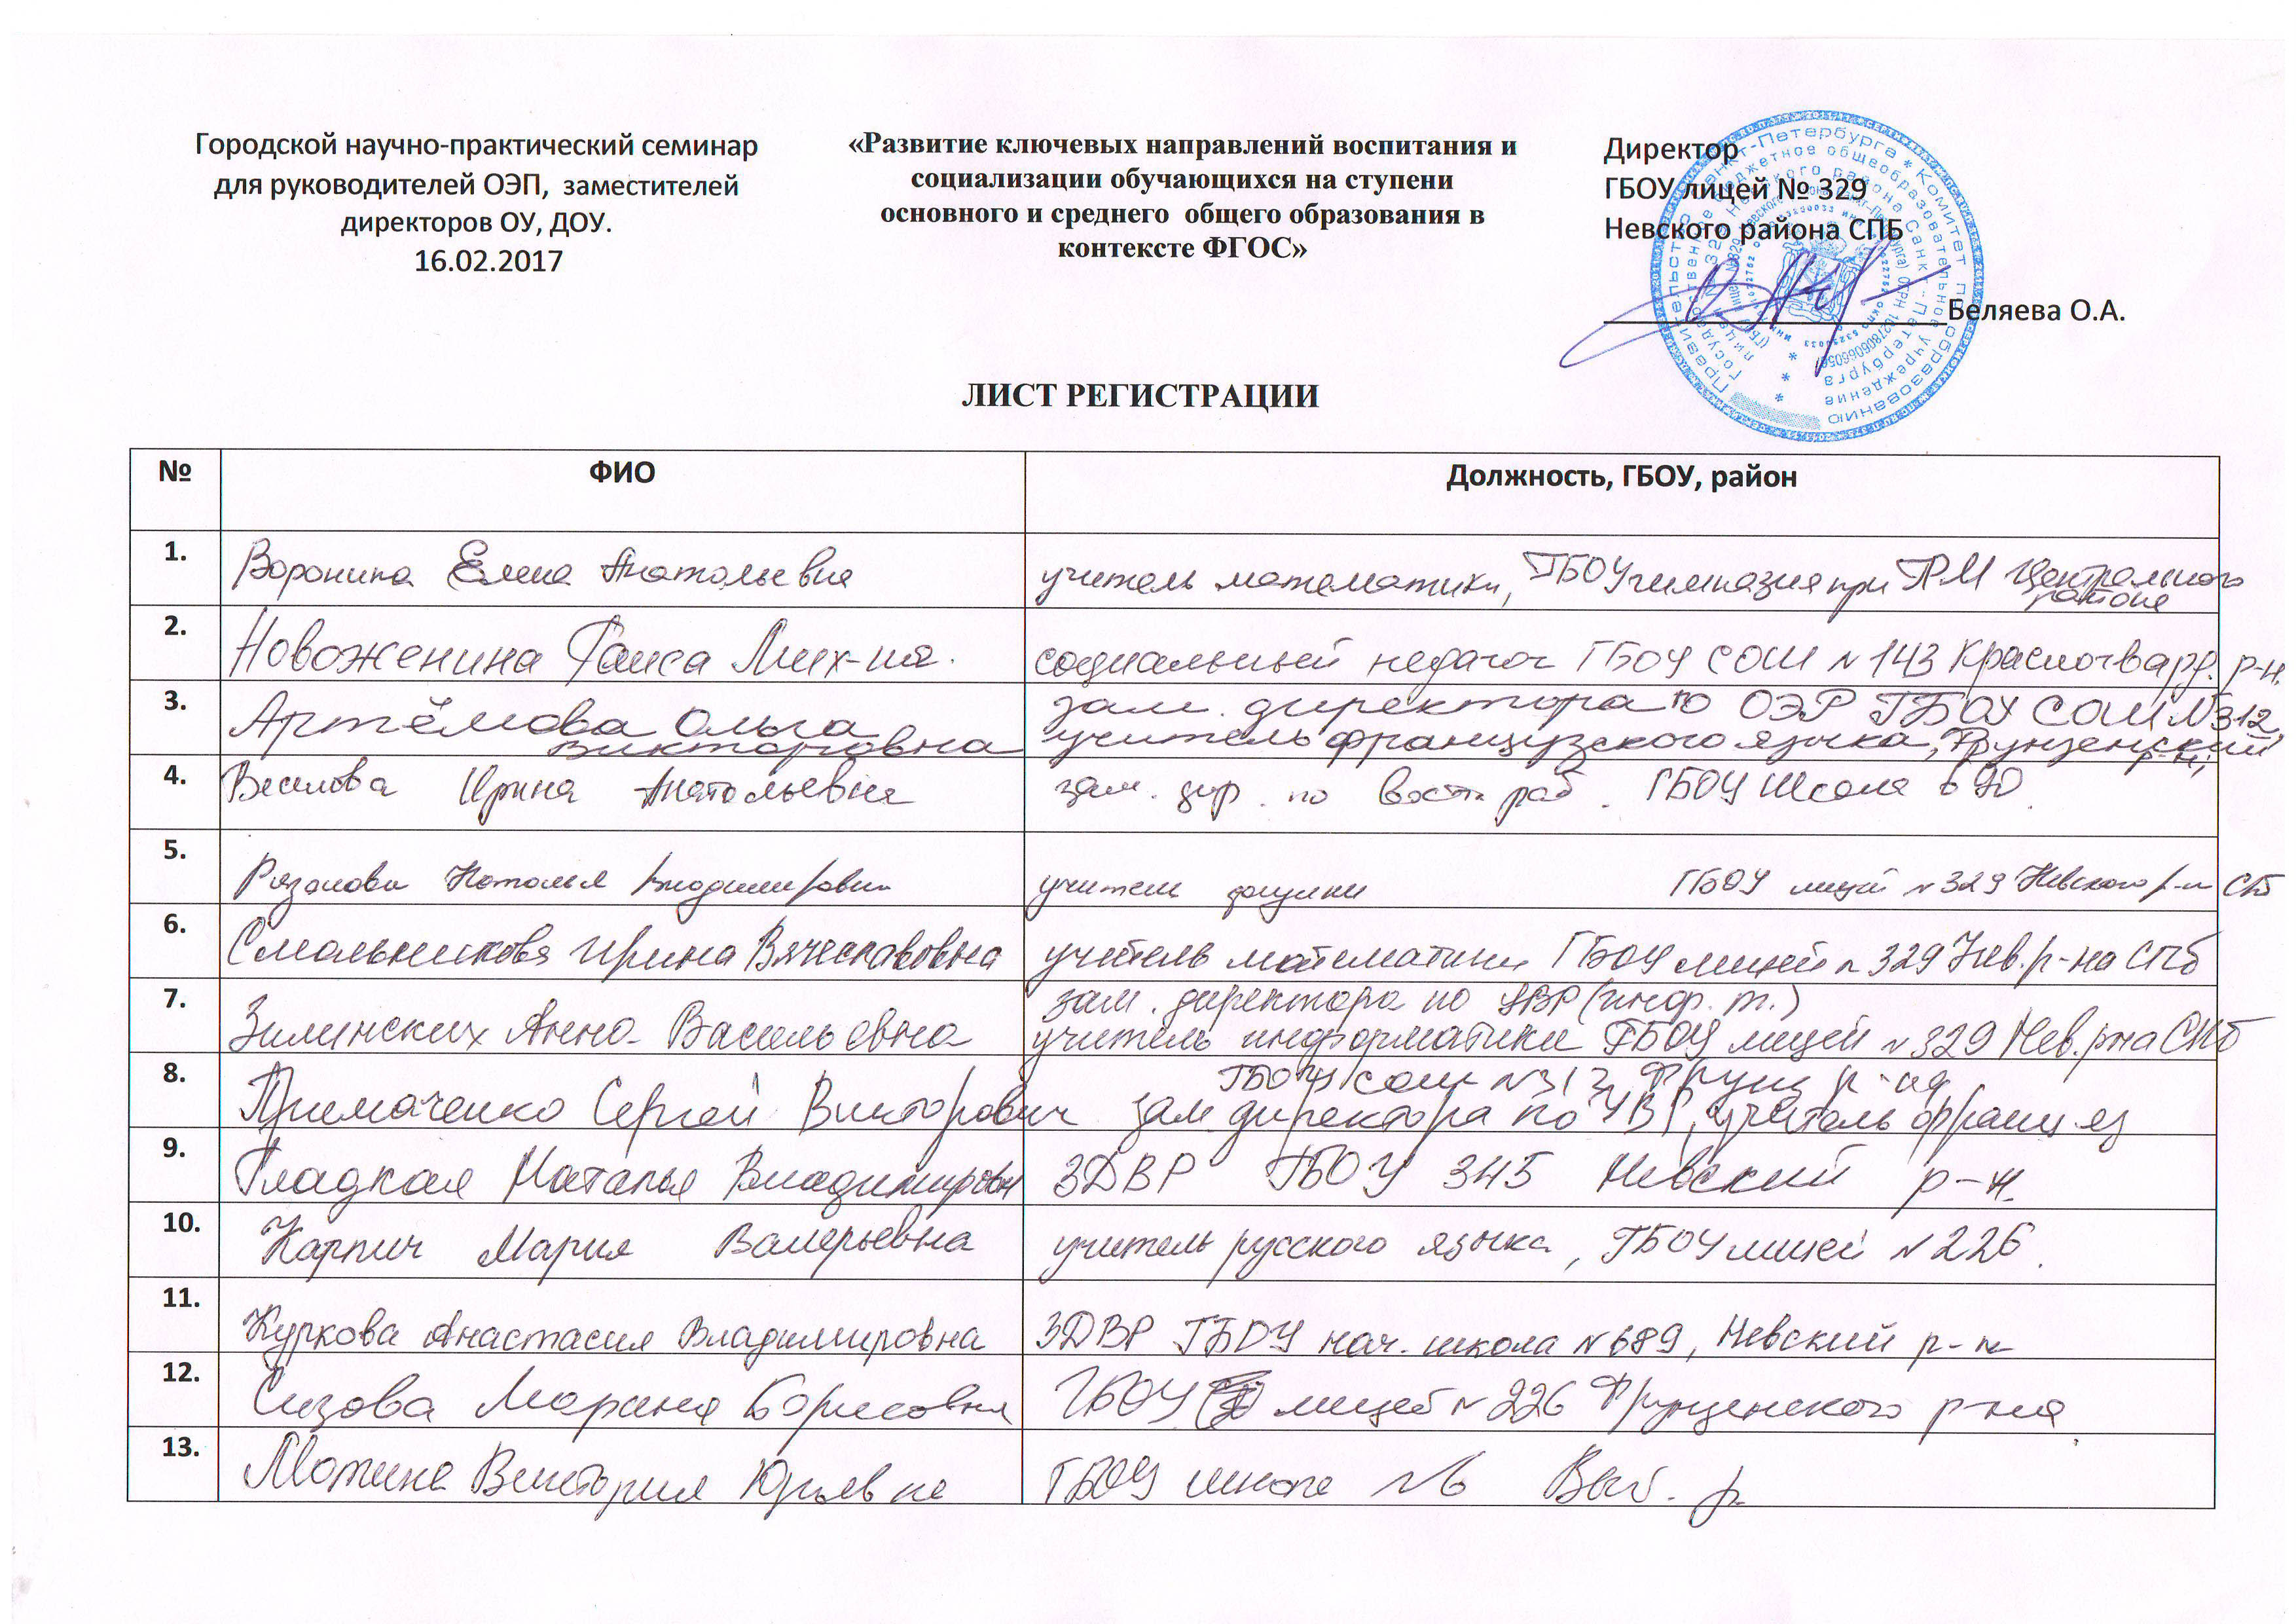 Городской научно-практический семинар
для руководителей ОЭП, заместителей
директоров ОУ, ДОУ.
16.02.2017
«Развитие ключевых направлений воспитания и
социализации обучающихся на ступени
основного и среднего общего образования в
контексте ФГОС»
Директор
ГБОУ лицей № 329
Невского района СПБ
Беляева О.А.
ЛИСТ РЕГИСТРАЦИИ
№ ФИО Должность, ГБОУ, район
1. Воронина Елена Анатольевна учитель математики, ГБОУ гимназия при ГРМ Центрального
района
2. Новоженина Раиса Мих-на. социальный педагог ГБОУ СОШ № 143 Красногвард. р-н.
3. Артёмова Ольга
Викторовна
зам. директора по ОЭР ГБОУ СОШ №312,
учитель французского языка, Фрунзенский
р-н;
4. Веселова Ирина Анатольевна зам. дир. по восп. раб. ГБОУ Школа
5. Рязанова Наталья Владимировна учитель ГБОУ лицей №329 Невского р-н СПб
6. Смольникова Ирина Вячеславовна учитель математики ГБОУ лицей № 329 Нев. р-на СПб
7. Зилинских Анна Васильевна
зам. директора по УВР (инф. т.)
учитель информатики ГБОУ лицей №329 Нев. р-на СПб
ГБОУ СОШ №312 Фрунз р-на
8. Примаченко Сергей Викторович зам. директора по УВР, учитель франц. яз
9. Гладкая Наталья Владимировн ЗДВР ГБОУ 345 Невский р-н.
10. Карпич Мария Валерьевна учитель русского языка, ГБОУ лицей №226.
11. Куркова Анастасия Владимировна ЗДВР ГБОУ нач. школа №689, Невский р-н
12. Сизова Марина Борисовна ГБОУ лицей №226 Фрунзенского р-на
13. Мотина Виктория Юрьевна ГБОУ школа №6 Выб. р.